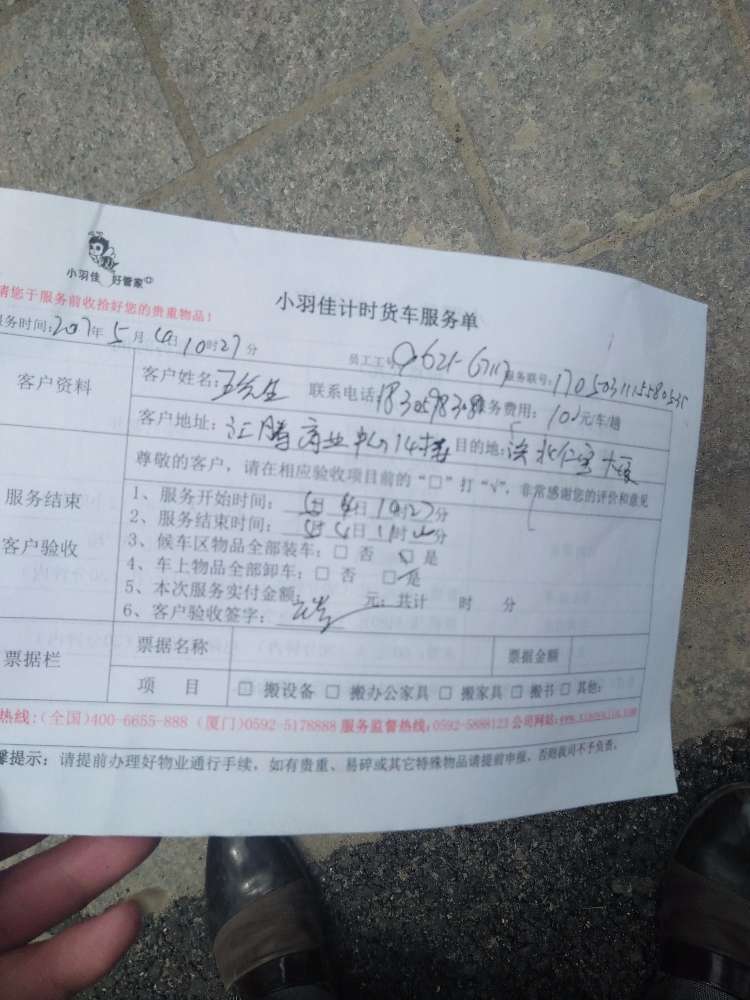 小羽佳 好管家
小羽佳计时货车服务单
请您于服务前收拾好您的贵重物品！
服务时间：2017年5月4日10时27分 员工工号 服务联号：
客户资料 客户姓名：王先生 联系电话： 服务费用：100元/车/趟
客户地址：汇腾商业中心14楼 目的地：
尊敬的客户，请在相应验收项目前的“□”打“√”，非常感谢您的评价和意见
服务结束
客户验收
1、服务开始时间：5月4日10时27分
2、服务结束时间：5月4日11时分
3、候车区物品全部装车：□ 否 □ 是
4、车上物品全部卸车：□ 否 □ 是
5、本次服务实付金额： 元；共计 时 分
6、客户验收签字：
票据栏 票据名称 票据金额
项 目 □ 搬设备 □ 搬办公家具 □ 搬家具 □ 搬书 □ 其他：
热线：(全国)400-6655-888 (厦门)0592-5178888 服务监督热线：0592-5888123 公司网站：
馨提示：请提前办理好物业通行手续，如有贵重、易碎或其它特殊物品请提前申报，否则我司不予负责。